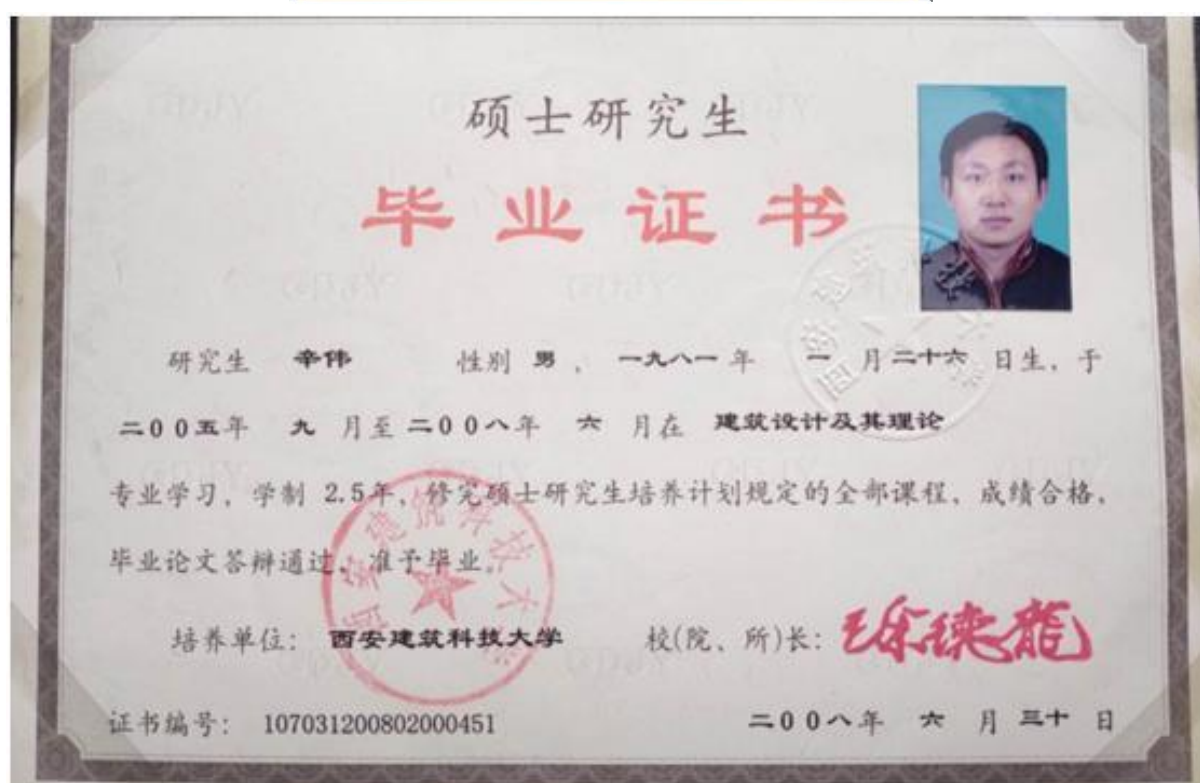 硕士研究生
毕业证书
研究生 辛伟 性别 男、一九八一年 一月二十六日生、于
二00五年 九月至二00八年 六月在 建筑设计及其理论
专业学习,学制 2.5年、修完硕士研究生培养计划规定的全部课程、成绩合格,
毕业论文答辩通过、准予毕业。
西安建筑科技大学
培养单位: 西安建筑科技大学 校(院、所)长:
证书编号: 107031200802000451 二00八年 六月三十日